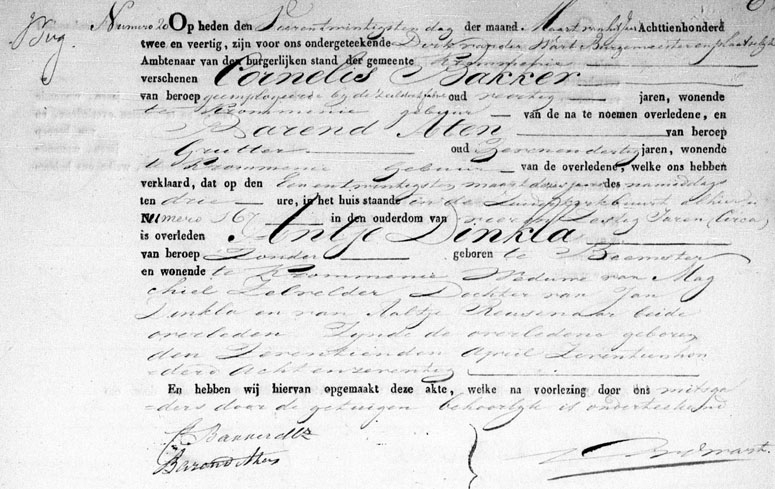 Numero 20 Op heden den Vierentwintigsten dag der maand Maart van het jaar Achttienhonderd
twee en veertig, zijn voor ons ondergeteekende Dirk van der Hart Burgemeester en plaatselijk
Ambtenaar van den burgerlijken stand der gemeente Krommenie
verschenen Cornelis Bakker
van beroep geemployeerde bij de oud veertig jaren, wonende
te Krommenie gebuur van de na te noemen overledene, en
Barend Aten van beroep
Grutter oud Zevenendertig jaren, wonende
te Krommenie Gebuur van de overledene, welke ons hebben
verklaard, dat op den Een en twintigsten maart dezes jaars des namiddags
ten drie ure, in het huis staande in de alhier
Numero 167 in den ouderdom van vier en Zestig Jaren (Circa)
is overleden Antje Dinkla
van beroep Zonder geboren te Beemster
en wonende te Krommenie Weduwe van Mag
chiel Zelvelder Dochter van Jan
Dinkla en van Aaltje Reusenaar beide
overleden Zynde de overledene geboren
den Zeventienden April Zeventienhon
derd Acht en zeventig
En hebben wij hiervan opgemaakt deze akte, welke na voorlezing door ons mitsga
ders door de getuigen behoorlijk is onderteekend
C Bakker dz
Barend Aten